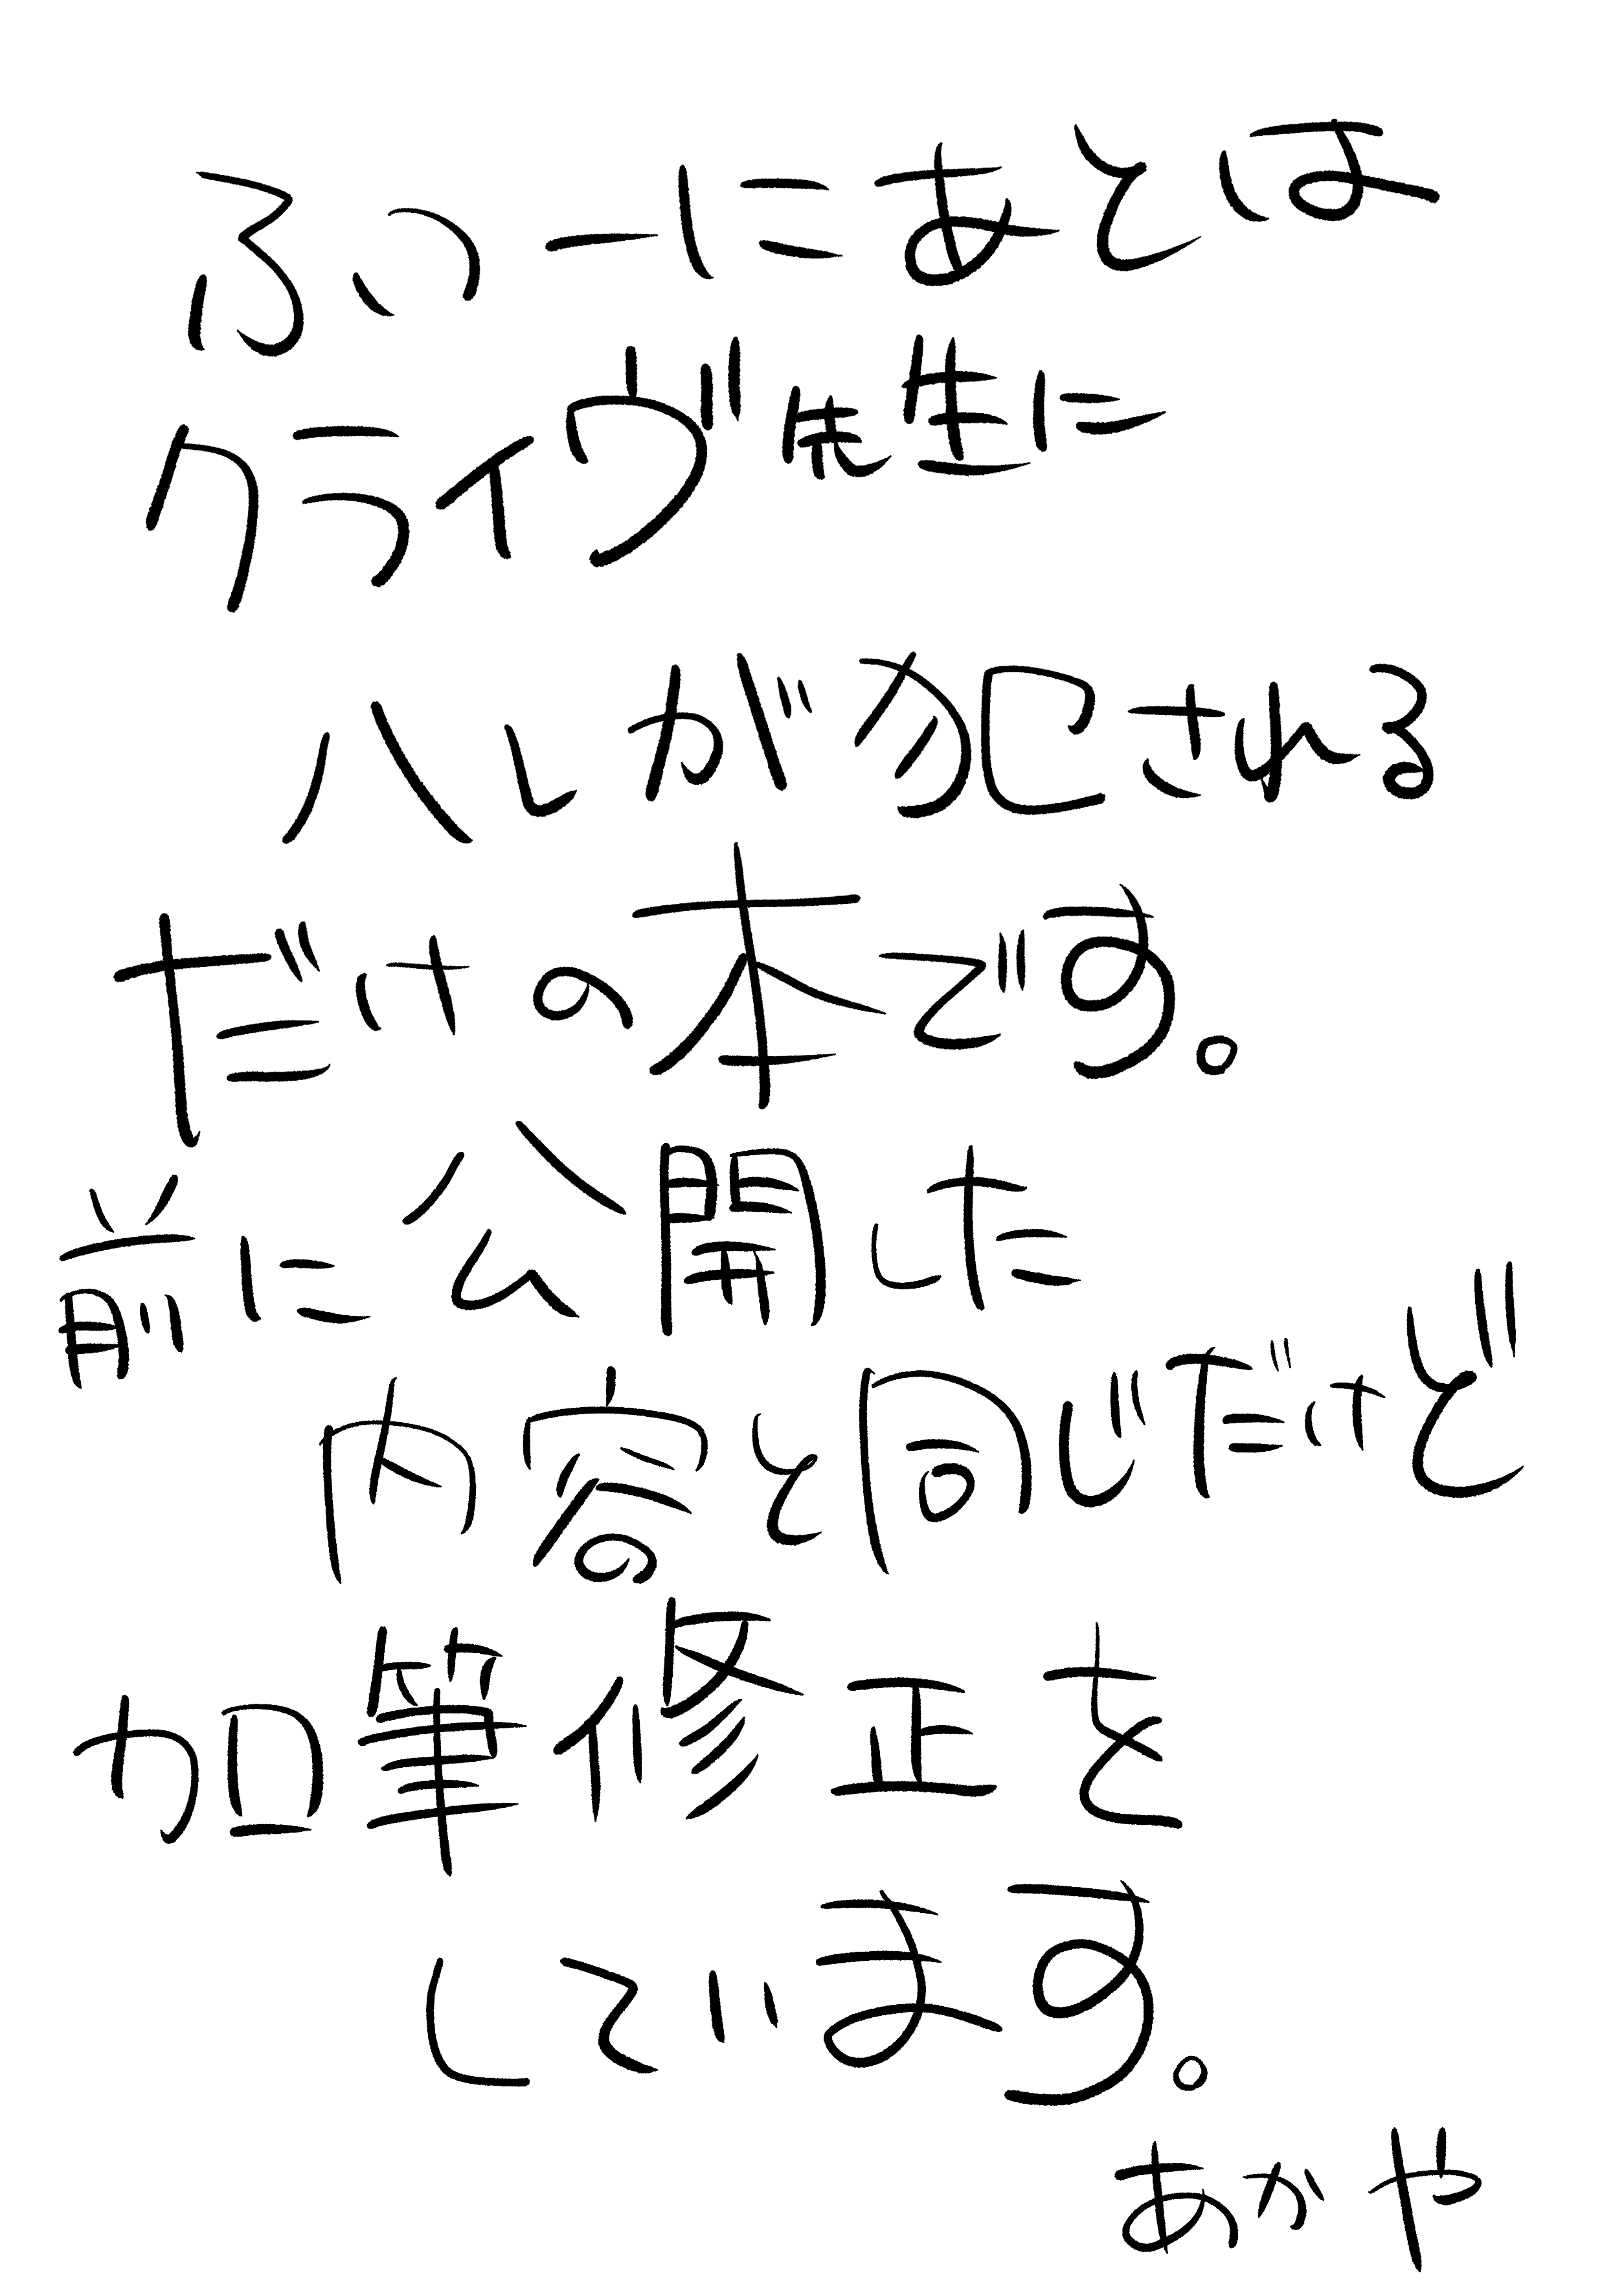 ふつーにあとは
クライヴ先生に
ハルが犯される
だけの本です。
前に公開した
内容と同じだけど
加筆修正を
しています。
あかや